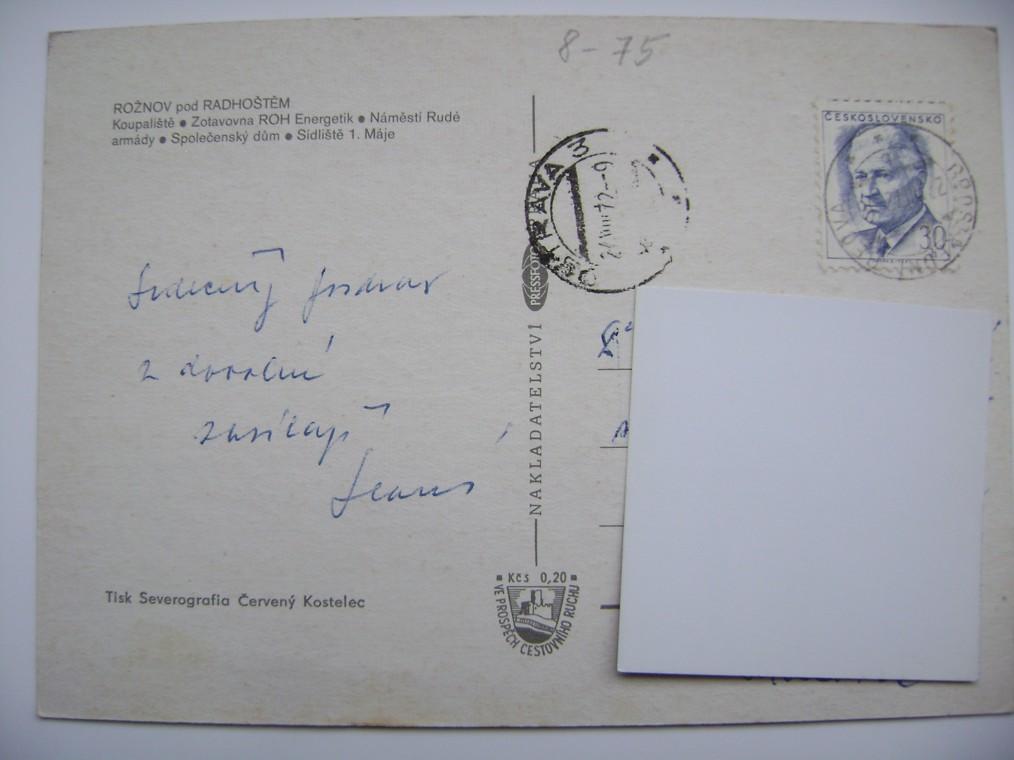 8-75
ROŽNOV pod RADHOŠTĚM
Koupaliště ● Zotavovna ROH Energetik ● Náměstí Rudé
armády ● Společenský dům ● Sídliště 1. Máje
ČESKOSLOVENSKO
30
OSTRAVA 3
Srdečný pozdrav
z dovolené
zasílají
NAKLADATELSTVÍ PRESSFOTO
Kčs 0,20
VE PROSPĚCH CESTOVNÍHO RUCHU
Tisk Severografia Červený Kostelec